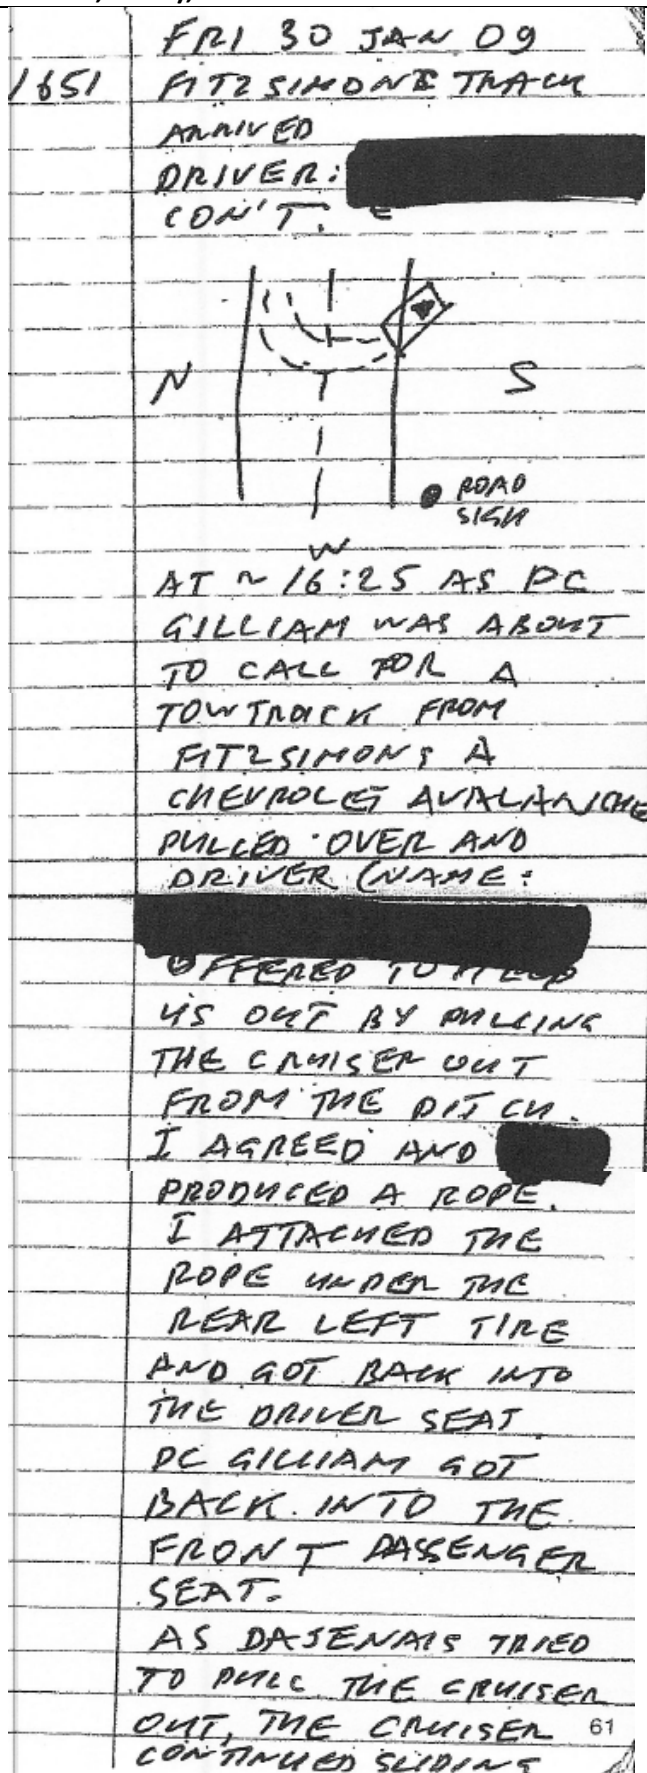 FRI 30 JAN 09
1651 FITZSIMONS TRACK
ARRIVED
DRIVER:
CON'T.
N
S
ROAD
SIGN
W
AT ~ 16:25 AS PC
GILLIAM WAS ABOUT
TO CALL FOR A
TOWTRUCK FROM
FITZSIMONS A
CHEVROLET AVALANCHE
PULLED OVER AND
DRIVER (NAME:
OFFERED TO HELP
US OUT BY PULLING
THE CRUISER OUT
FROM THE DITCH.
I AGREED AND
PRODUCED A ROPE.
I ATTACHED THE
ROPE UNDER THE
REAR LEFT TIRE
AND GOT BACK INTO
THE DRIVER SEAT.
PC GILLIAM GOT
BACK INTO THE
FRONT PASSENGER
SEAT.
AS DAJENAIS TRIED
TO PULL THE CRUISER
OUT, THE CRUISER
61
CONTINUED SLIDING